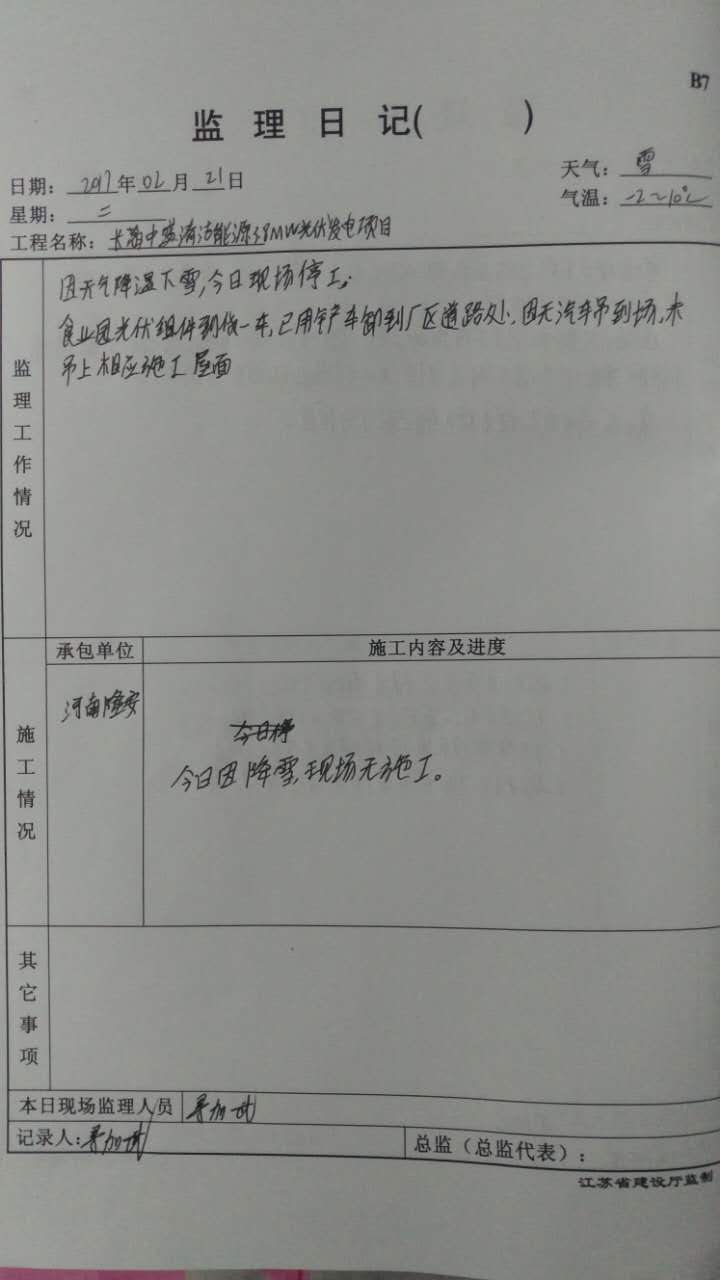 B7
监 理 日 记( )
日期: 2017年02月21日
天气: 雪
星期: 二
气温: -2~10℃
工程名称: 长葛中蓝清洁能源38MW光伏发电项目
监理工作情况
因天气降温下雪,今日现场停工;
食业园光伏组件到货一车,已用铲车卸到厂区道路处,因无汽车吊到场,未
吊上相应施工屋面
施工情况
承包单位
施工内容及进度
河南隆安
今日停
今日因降雪,现场无施工。
其它事项
本日现场监理人员
记录人:
总监(总监代表):
江苏省建设厅监制